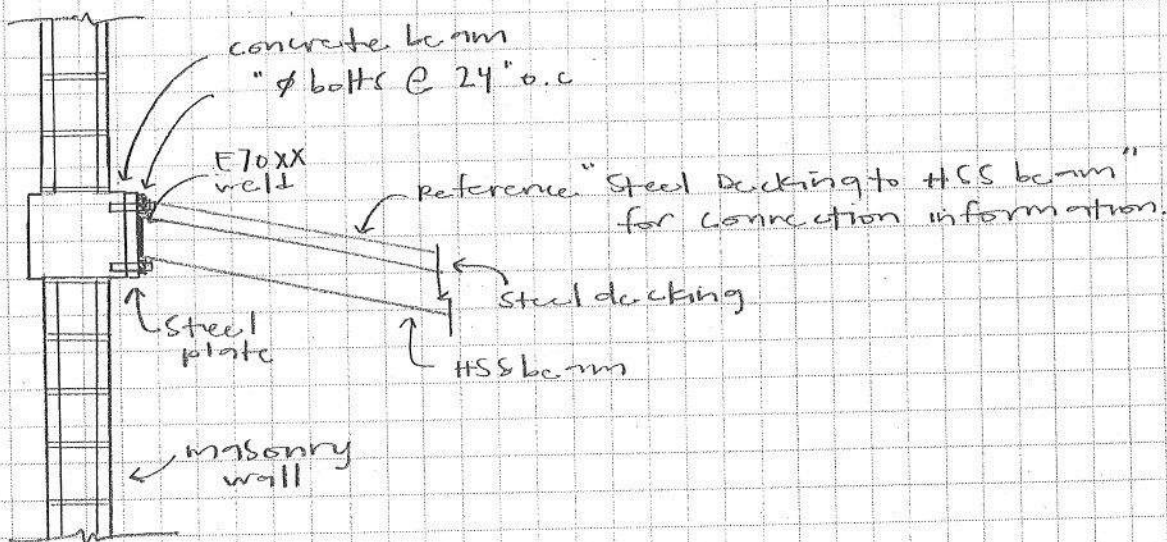 concrete beam
" ϕ bolts @ 24" o.c
E70XX
weld
Reference "Steel Decking to HSS beam"
for connection information.
steel decking
Steel
plate
HSS beam
masonry
wall